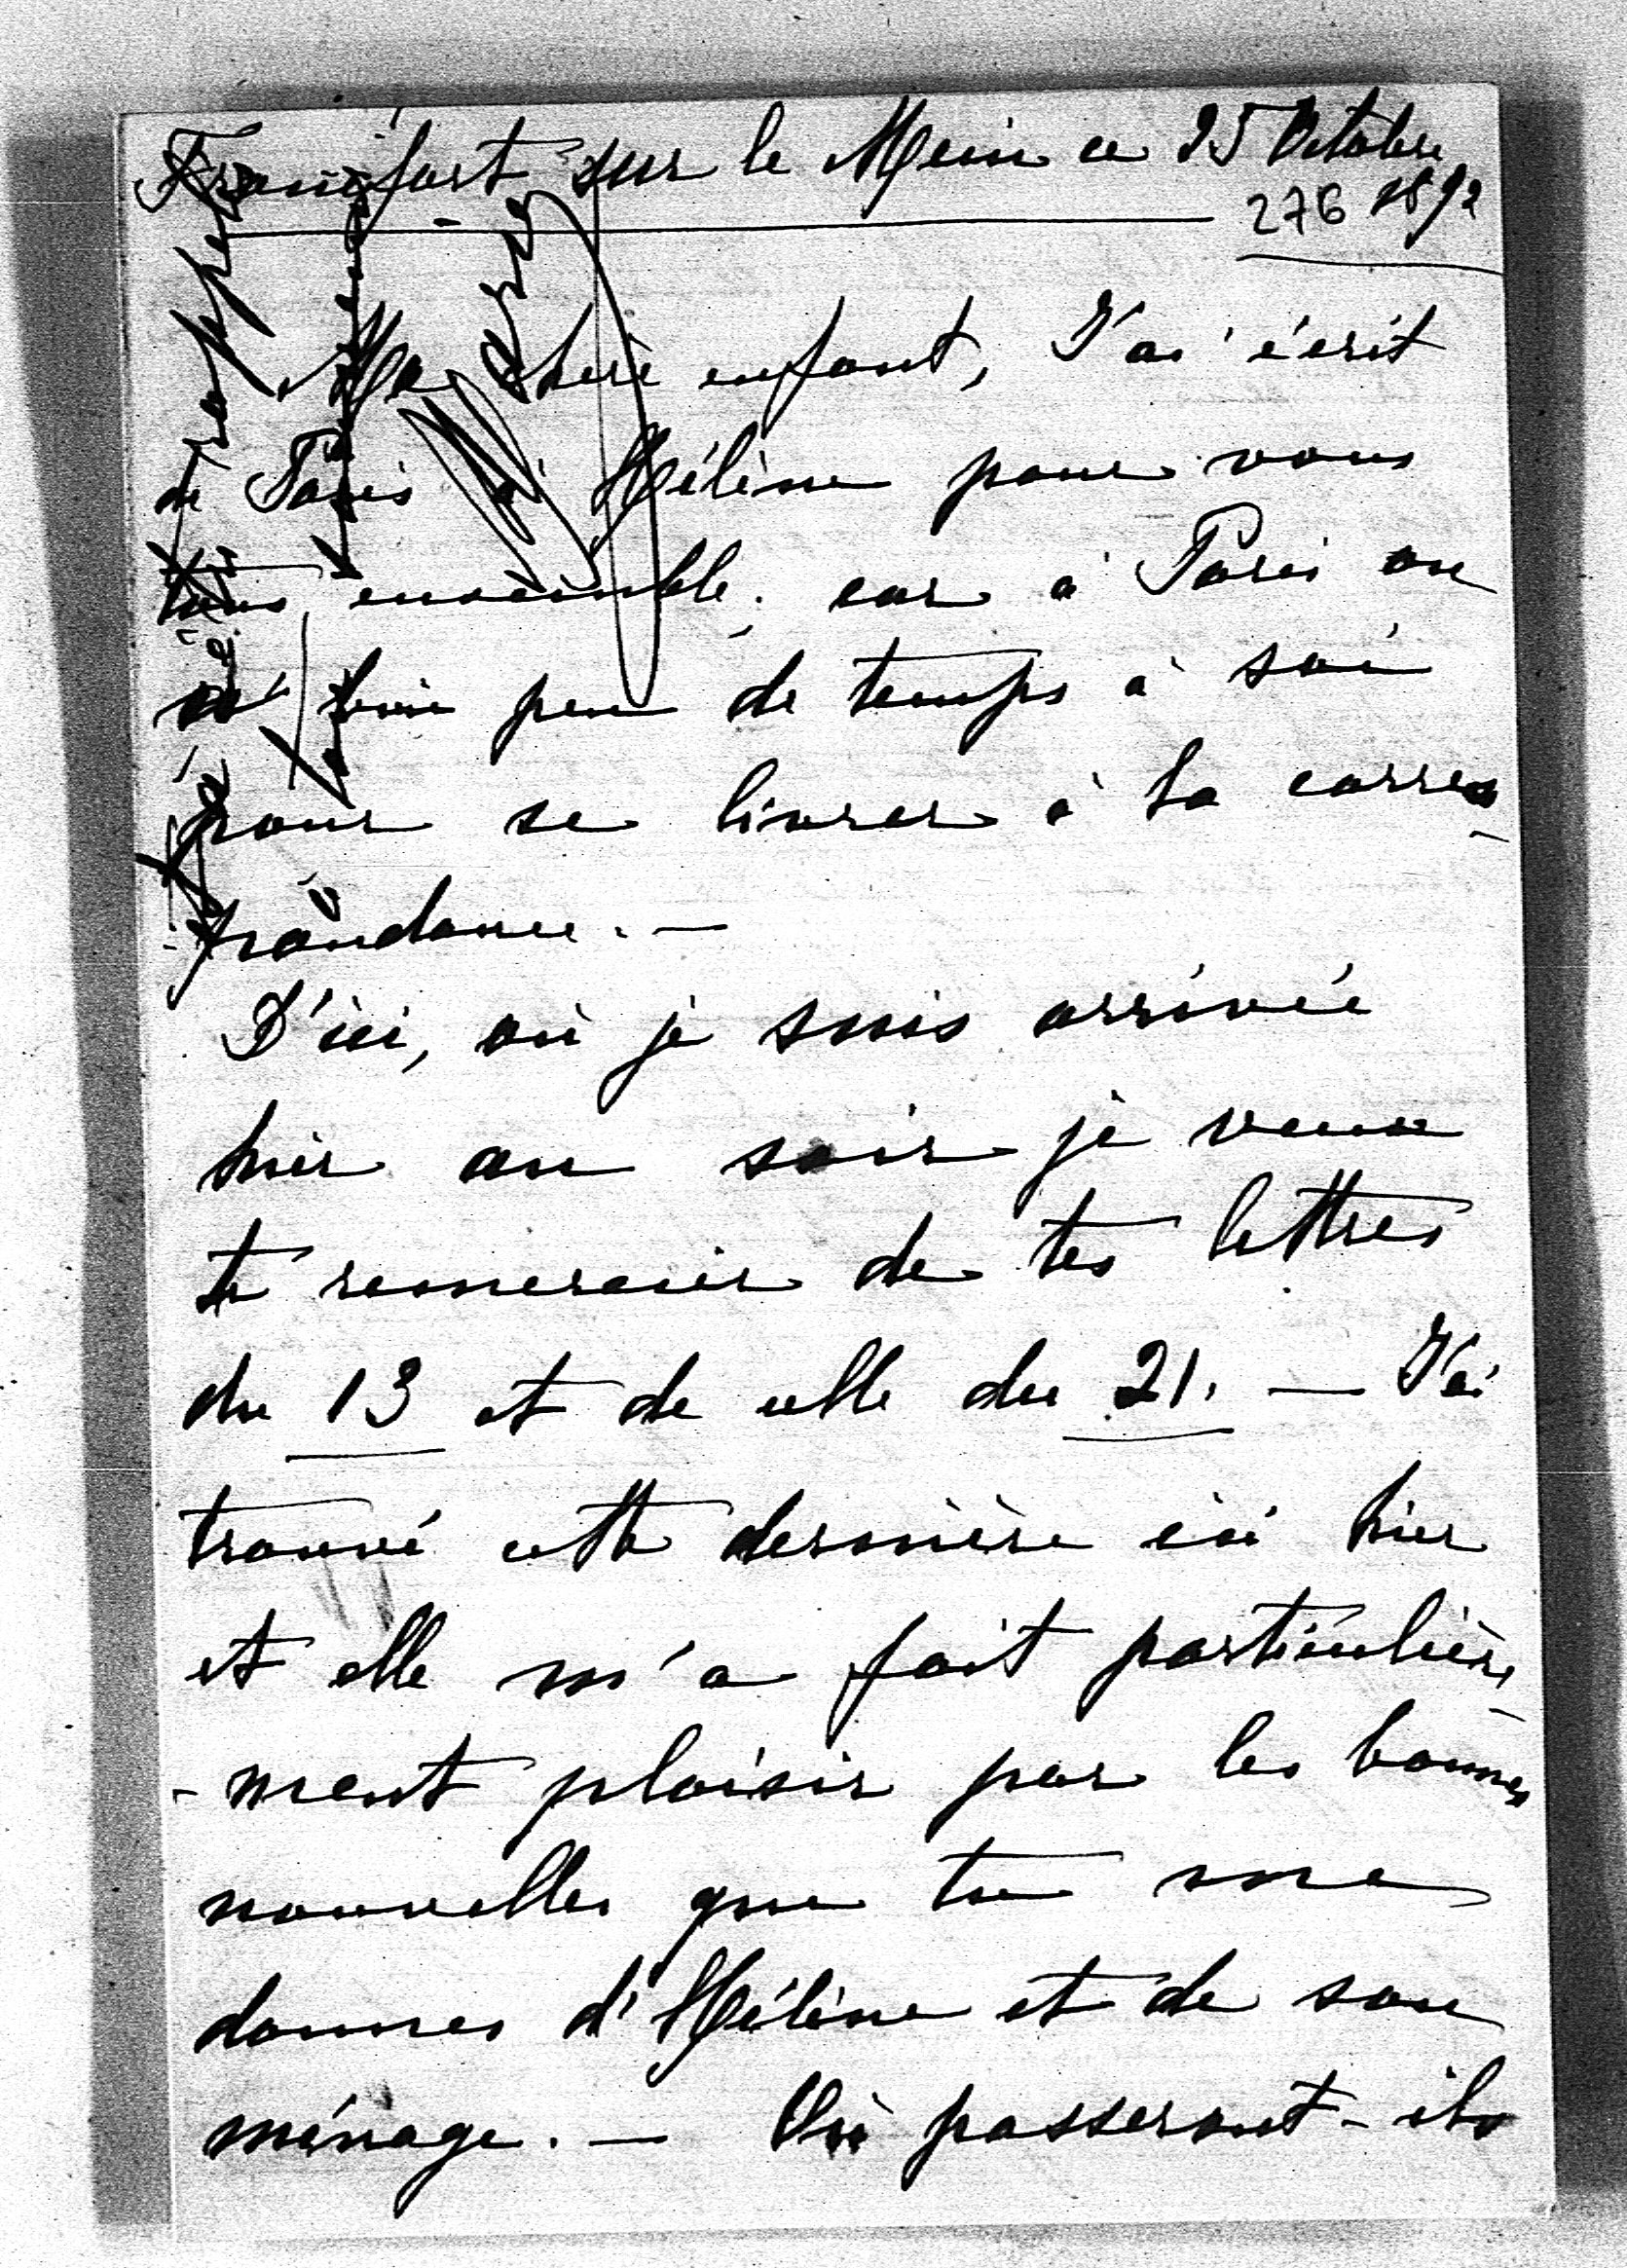 Francfort sur le Mein ce 25 Octobre
276 1892
Ma chère enfant, J'ai écrit
de Paris à Hélène pour vous
tous ensemble. car à Paris on
a bien peu de temps à soi
pour se livrer à la corres-
pondance. —
D'ici, où je suis arrivée
hier au soir je veux
te remercier de tes lettres
du 13 et de celle du 21. — J'ai
trouvé cette dernière ici hier
et elle m'a fait particulière-
-ment plaisir par les bonnes
nouvelles que tu me
donnes d'Hélène et de son
ménage. — Où passeront-ils